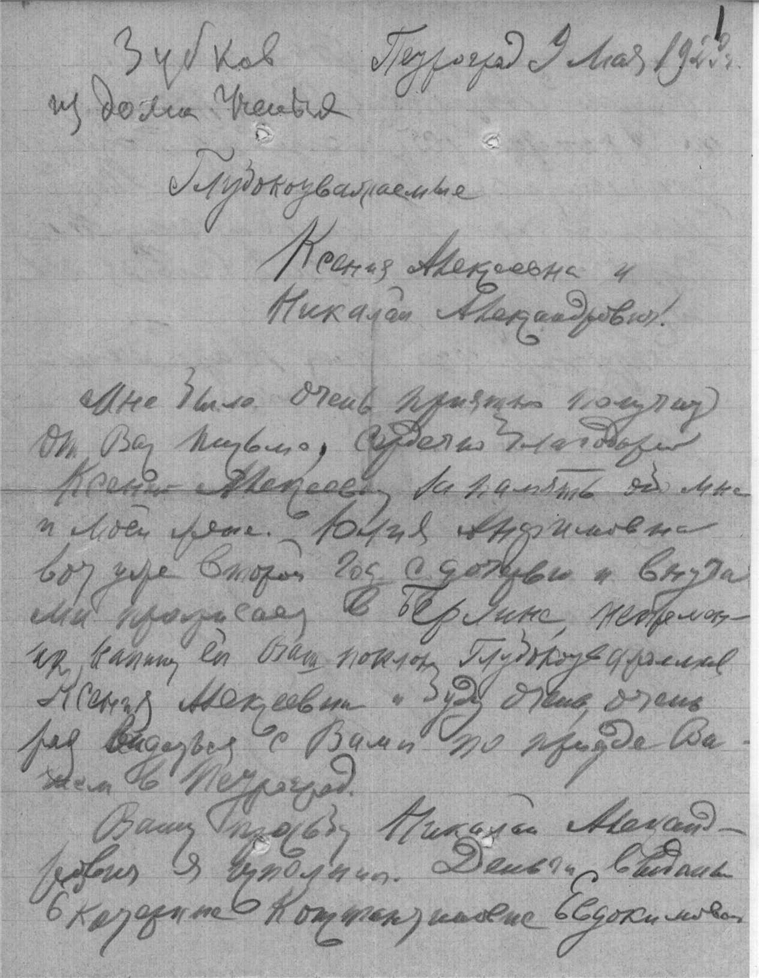 1
Зубков Петроград 9 Мая 192
из дома Ученых
Глубокоуважаемые
Ксения Алексеевна и
Николай Александрович!
Мне было очень приятно получить
от Вас письмо, сердечно благодарю
Ксению Алексеевну за память обо мне
и моей жене. Юлия Анфимовна
вот уже второй год с дочерью и внуча
ми проживает в Берлине, непремен-
но напишу ей Ваш поклон Глубокоуважаемая
Ксения Алексеевна и буду очень, очень
рад видеться с Вами по приезде Ва-
шем в Петроград.
Вашу просьбу Николай Александ-
рович я исполнил. Деньги выданы
Екатерине Константиновне Евдокимовой